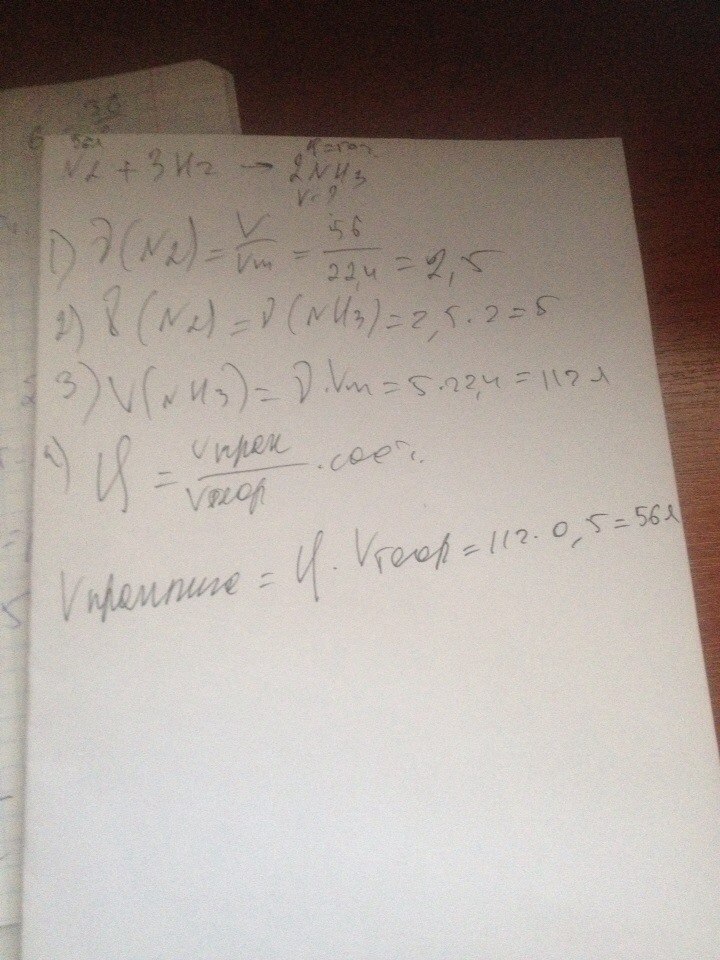 56л φ=50%
N2 + 3H2 → 2NH3
V-?
1) ν(N2) = V/Vm = 56/22,4 = 2,5
2) ν(N2) = ν(NH3) = 2,5·2 = 5
3) V(NH3) = ν·Vm = 5·22,4 = 112 л
φ = Vпрак/Vтеор
Vпрактич = φ·Vтеор = 112·0,5 = 56л